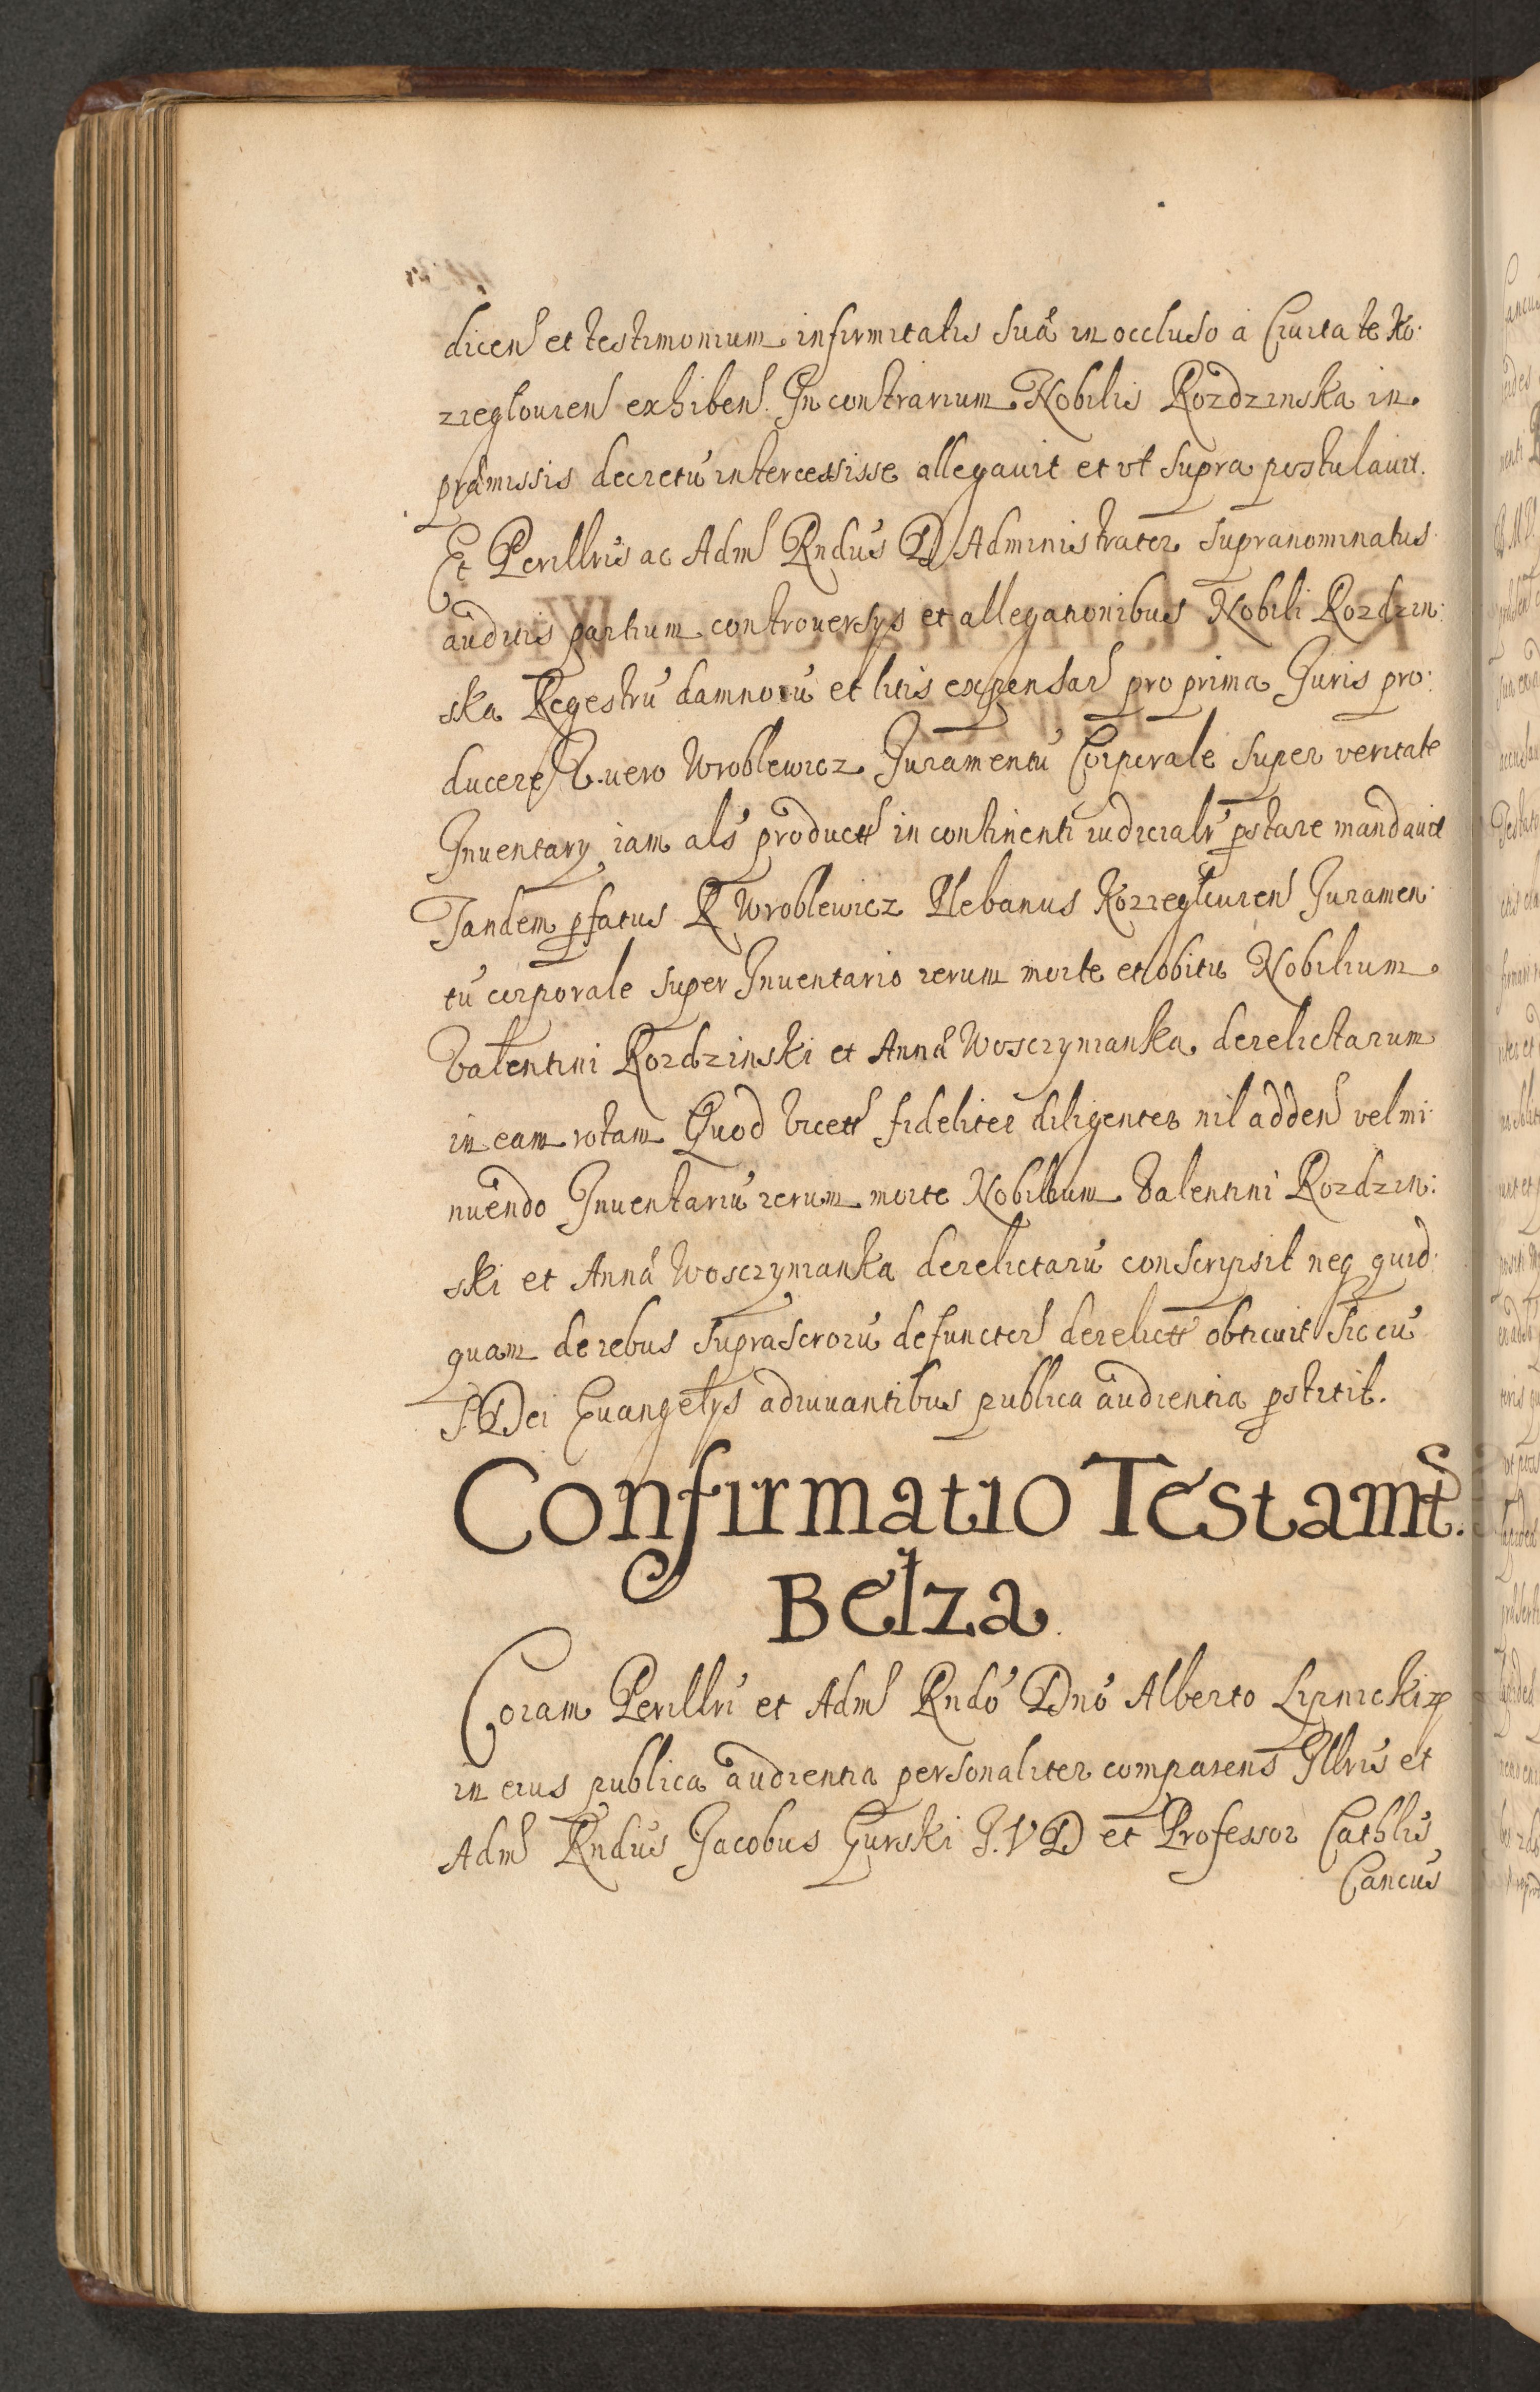 dicen et testimonium infirmitatis suæ in occluso à Ciuitate Ko:
zieglouien exhiben. In contrarium Nobilis Rozdzinska in
præmissis decretũ intercessisse allegauit et vt supra postulauit.
Et Perillris ac Adm Rndus D Administrator supranominatus
auditis partium controuersys et allegationibus Nobili Rozdzin:
ska Regestrũ damnorũ et litis expensar pro prima Juris pro:
ducere R. vero Wroblewicz Juramentũ Corporale super veritate
Inuentary iam als product in continenti iudicialr pstare mandauit
Tandem pfatus R Wroblewicz Plebanus Kozieglouien Juramen:
tũ corporale super Inuentario rerum morte et obitu Nobilium
Valentini Rozdzinski et Annæ Wosczynianka derelictarum
in eam rotam Quod licett fideliter diligenter nil adden vel mi:
nuendo Inuentariũ rerum morte Nobilium Valentini Rozdzin:
ski et Annæ Wosczynianka derelictarũ conscripsit neq quid:
quam de rebus suprascrorũ defunctor derelict obticuit sic eũ
S. Dei Euangelys adiuuantibus publica audientia pstitit.
Confirmatio Testamt.
Bełza
Coram Perillri et Adm Rndo Dno Alberto Lipnicki
in eius publica audientia personaliter comparens Illris et
Adm Rndus Jacobus Gurski J. V D et Professor Cathlis
Cancus